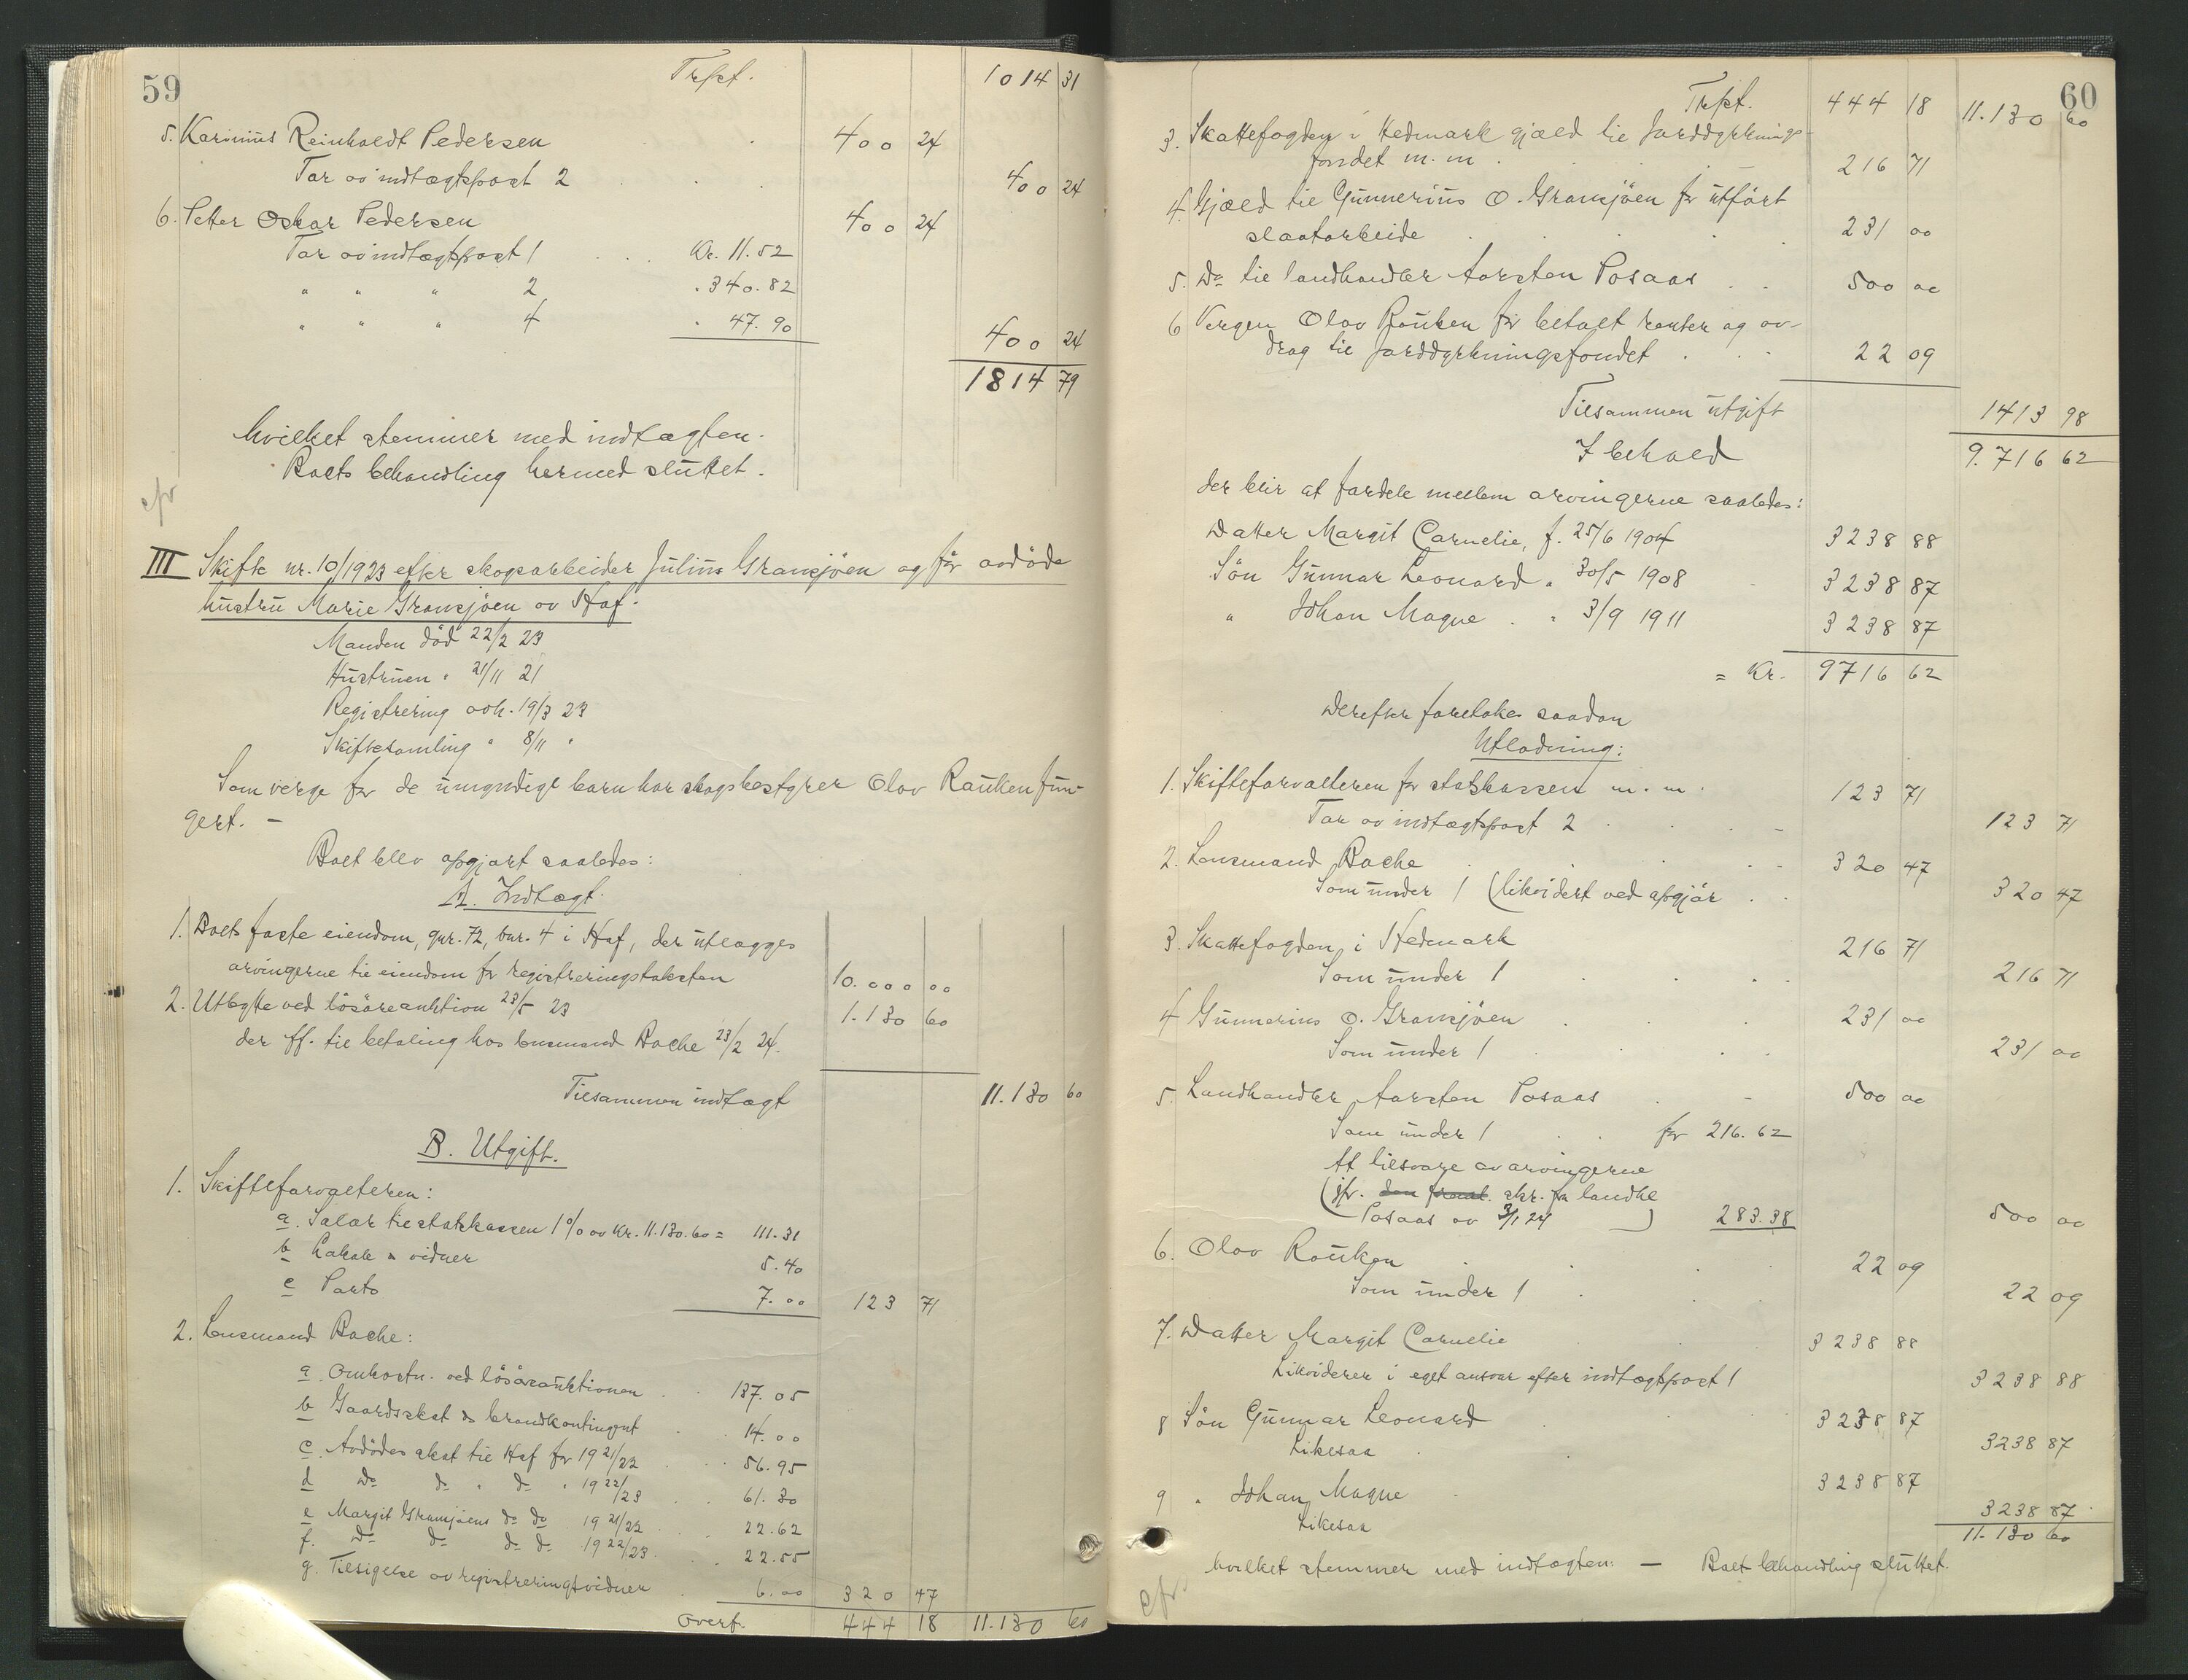 59
Trspt. 1014 31
5. Karinius Reinholdt Pedersen 400 24
Tar av indtægtspost 2 400 24
6. Petter Oskar Pedersen 400 24
Tar av indtægtspost 1 Kr. 11.52
" " " 2 " 340.82
" " " 4 " 47.90
400 24
1814 79
hvilket stemmer med indtægten.
Boets behandling hermed sluttet.
cfr
III Skifte nr. 10/1923 efter skogsarbeider Julius Gransjöen og før avdöde
hustru Marie Gransjöen av Hof.
Manden död 22/2 23
Hustruen " 21/11 21
Registrering avh. 19/3 23
Skiftesamling " 8/11 "
Som verge for de umyndige barn har skogsbestyrer Olav Rauken fun-
gert. -
Boet blev opgjort saaledes:
A. Indtægt.
1. Boets faste eiendom, gnr. 72, bnr. 4 i Hof, der utlægges
arvingerne til eiendom for registreringstaksten 10.000 00
2. Utbytte ved lösöreauktion 23/5 23 1.130 60
der ff. til betaling hos lensmand Bache 23/2 24.
Tilsammen indtægt 11.130 60
B. Utgift.
1. Skifteforvalteren:
a. Salær til statskassen 1% av kr. 11.130.60 = 111.31
b Lakak & vidner 5.40
c Porto 7.00 123 71
2. Lensmand Bache:
a. Omkostn. ved lösöreauktionen 137.05
b Gaardsskat & brandkontingent 14.00
c. Avdödes skat til Hof for 1921/22 56.95
d Do do " do " 1922/23 61.30
e Margit Gransjöens do do 1921/22 22.62
f. Do do do do 1922/23 22.55
g. Tilsigelse av registreringsvidner 6.00 320 47
Overf. 444 18 11.130 60
60
Trspt. 444 18 11.130 60
3. Skattefogden i Hedmark gjæld til Jorddyrknings-
fondet m.m. 216 71
4. Gjæld til Gunnerius O. Gransjöen for utfört
slaatarbeide 231 00
5. Do til landhandler Torsten Posaas 500 00
6 Vergen Olav Rauken for betalt renter og av-
drag til Jorddyrkningsfondet 22 09
Tilsammen utgift 1413 98
I behold 9.716 62
der blir at fordele mellem arvingerne saaledes:
Datter Margit Cornelie, f. 25/6 1904 3238 88
Sön Gunnar Leonard " 30/5 1908 3238 87
" Johan Magne " 3/9 1911 3238 87
= Kr. 9716 62
Derefter foretakes saadan
Utlodning:
1. Skifteforvalteren for statskassen m.m. 123 71
Tar av indtægtspost 2 123 71
2. Lensmand Bache 320 47
Som under 1 (likvidert ved opgjör 320 47
3. Skattefogden i Hedmark 216 71
Som under 1 216 71
4 Gunnerius O. Gransjöen 231 00
Som under 1 231 00
5. Landhandler Torsten Posaas 500 00
Som under 1 for 216.62
At tilsvare av arvingerne
(jfr. skr. fra landhl
Posaas av 3/1 24) 283.38 500 00
6. Olav Rauken 22 09
Som under 1 22 09
7. Datter Margit Cornelie 3238 88
Likviderer i eget ansvar efter indtægtspost 1 3238 88
8 Sön Gunnar Leonard 3238 87
Likesaa 3238 87
9 " Johan Magne 3238 87
Likesaa 3238 87
11.130 60
hvilket stemmer med indtægten: — Boets behandling sluttet.
cfr